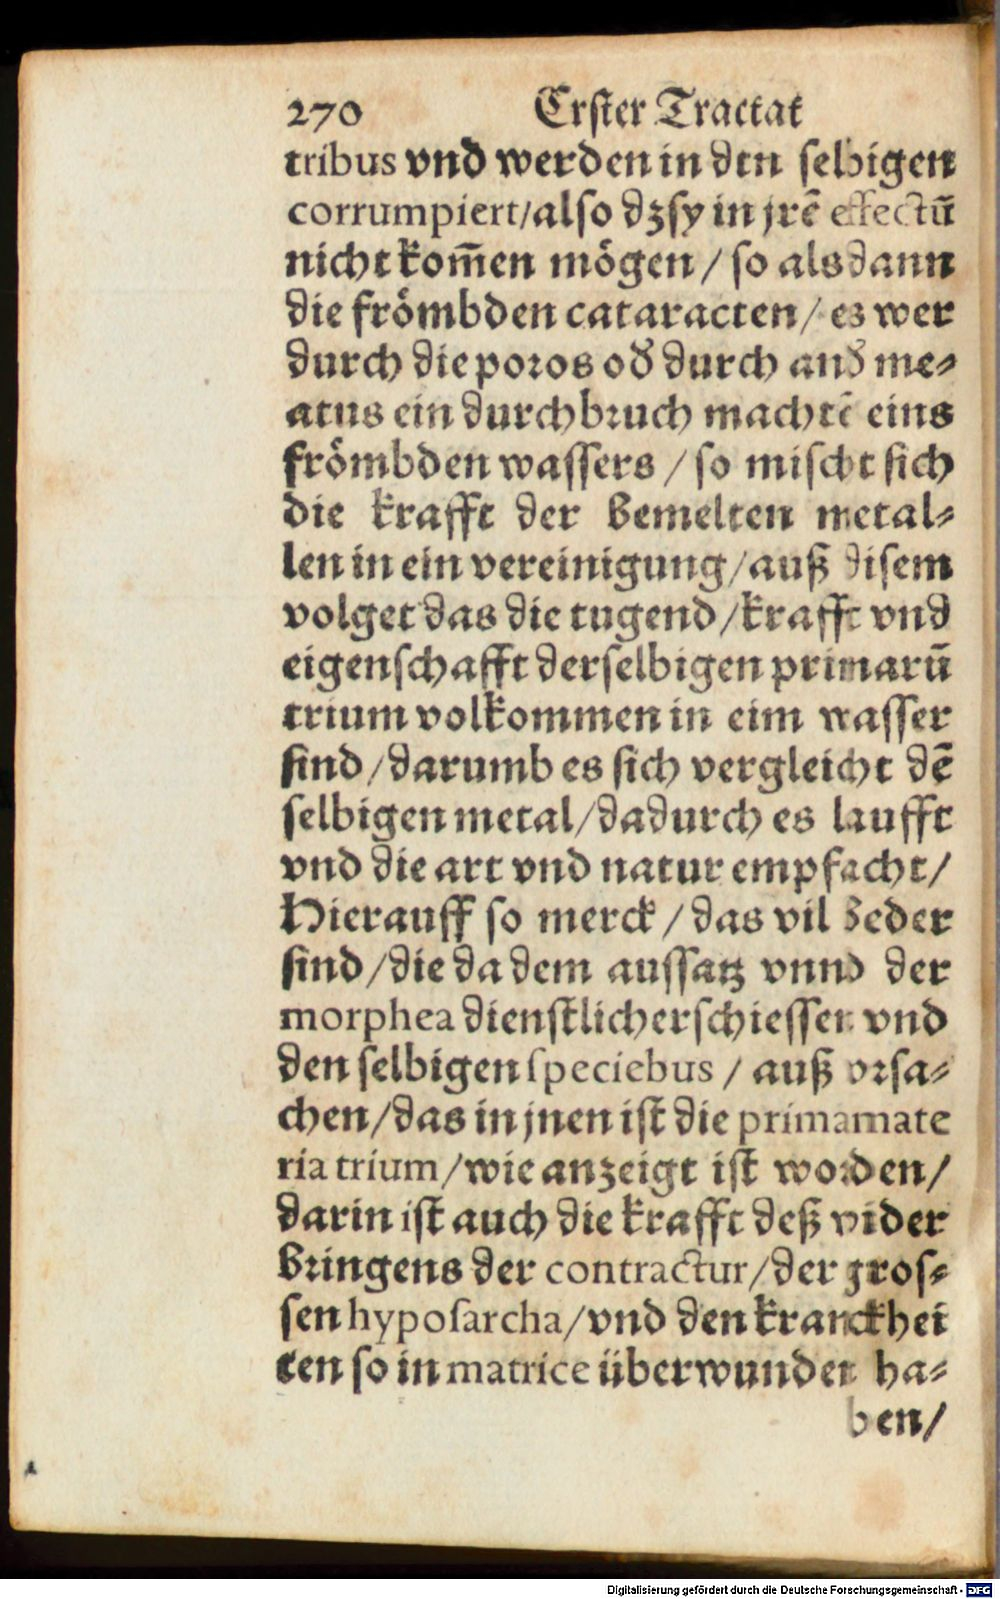 270 Erster Tractat
tribus vnd werden in den selbigen
corrumpiert/also dz sy in jrē effectū
nicht kom̄en mögen / so als dann
die frömbden cataracten/ es wer
durch die poros od̄ durch and̄ me⸗
atus ein durchbruch machtē eins
frömbden wassers / so mischt sich
die krafft der bemelten metal⸗
len in ein vereinigung/auß disem
volget das die tugend/krafft vnd
eigenschafft derselbigen primarū
trium volkommen in eim wasser
sind/darumb es sich vergleicht dē
selbigen metal/dadurch es laufft
vnd die art vnd natur empfacht/
Hierauff so merck / das vil beder
sind/die da dem aussatz vnnd der
morphea dienstlich erschiessen vnd
den selbigen speciebus / auß vrsa⸗
chen/das in jnen ist die prima mate
ria trium/wie anzeigt ist worden/
darin ist auch die krafft deß wider
bringens der contractur/der gros⸗
sen hyposarcha/vnd den kranckhei
ten so in matrice überwunden ha⸗
ben/
Digitalisierung gefördert durch die Deutsche Forschungsgemeinschaft - DFG